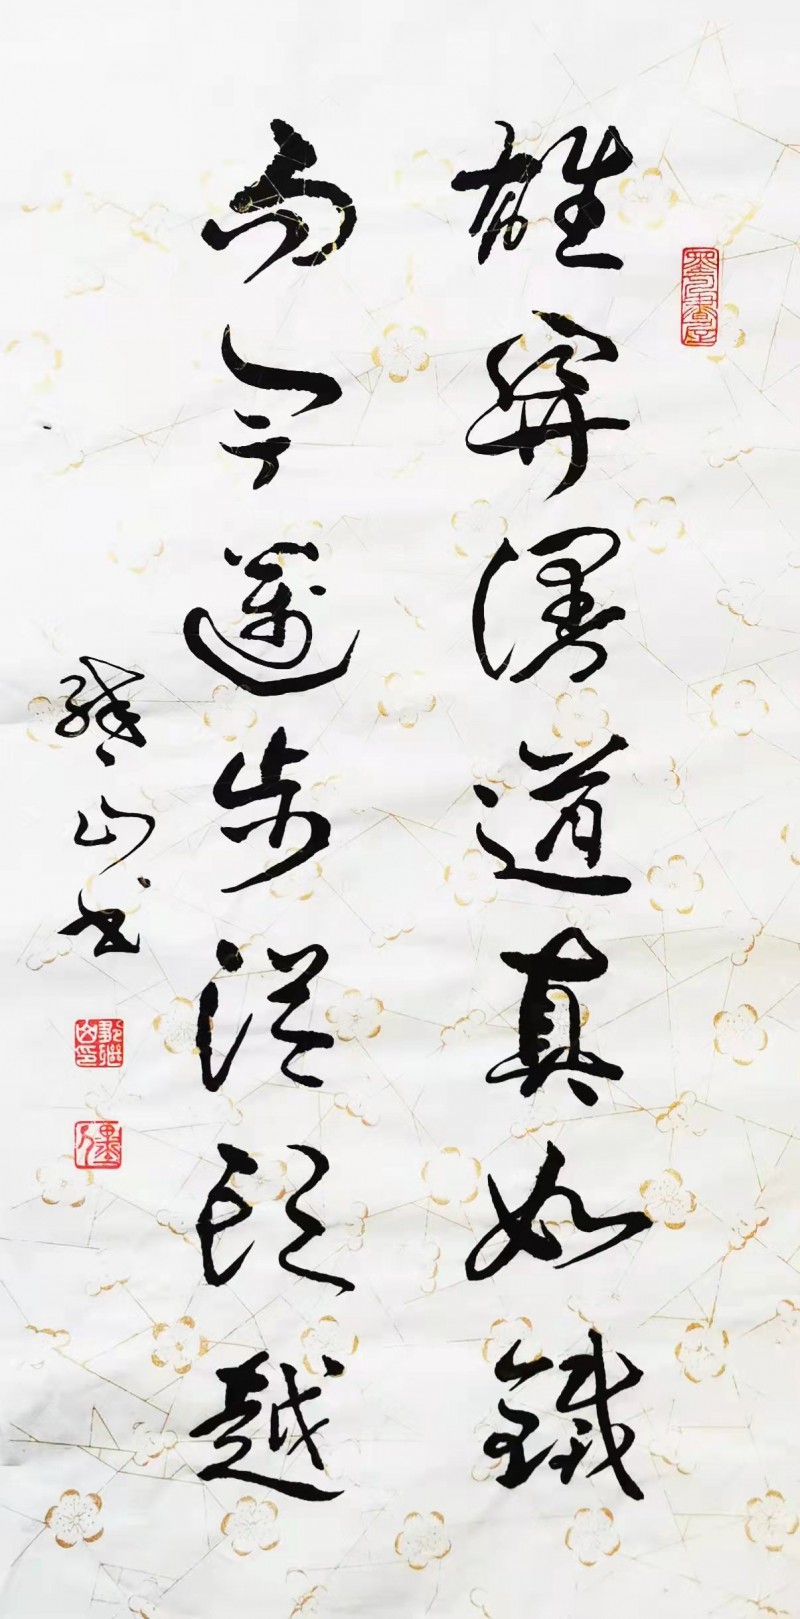 雄関漫道真如鐵
而今邁步從頭越
继山书